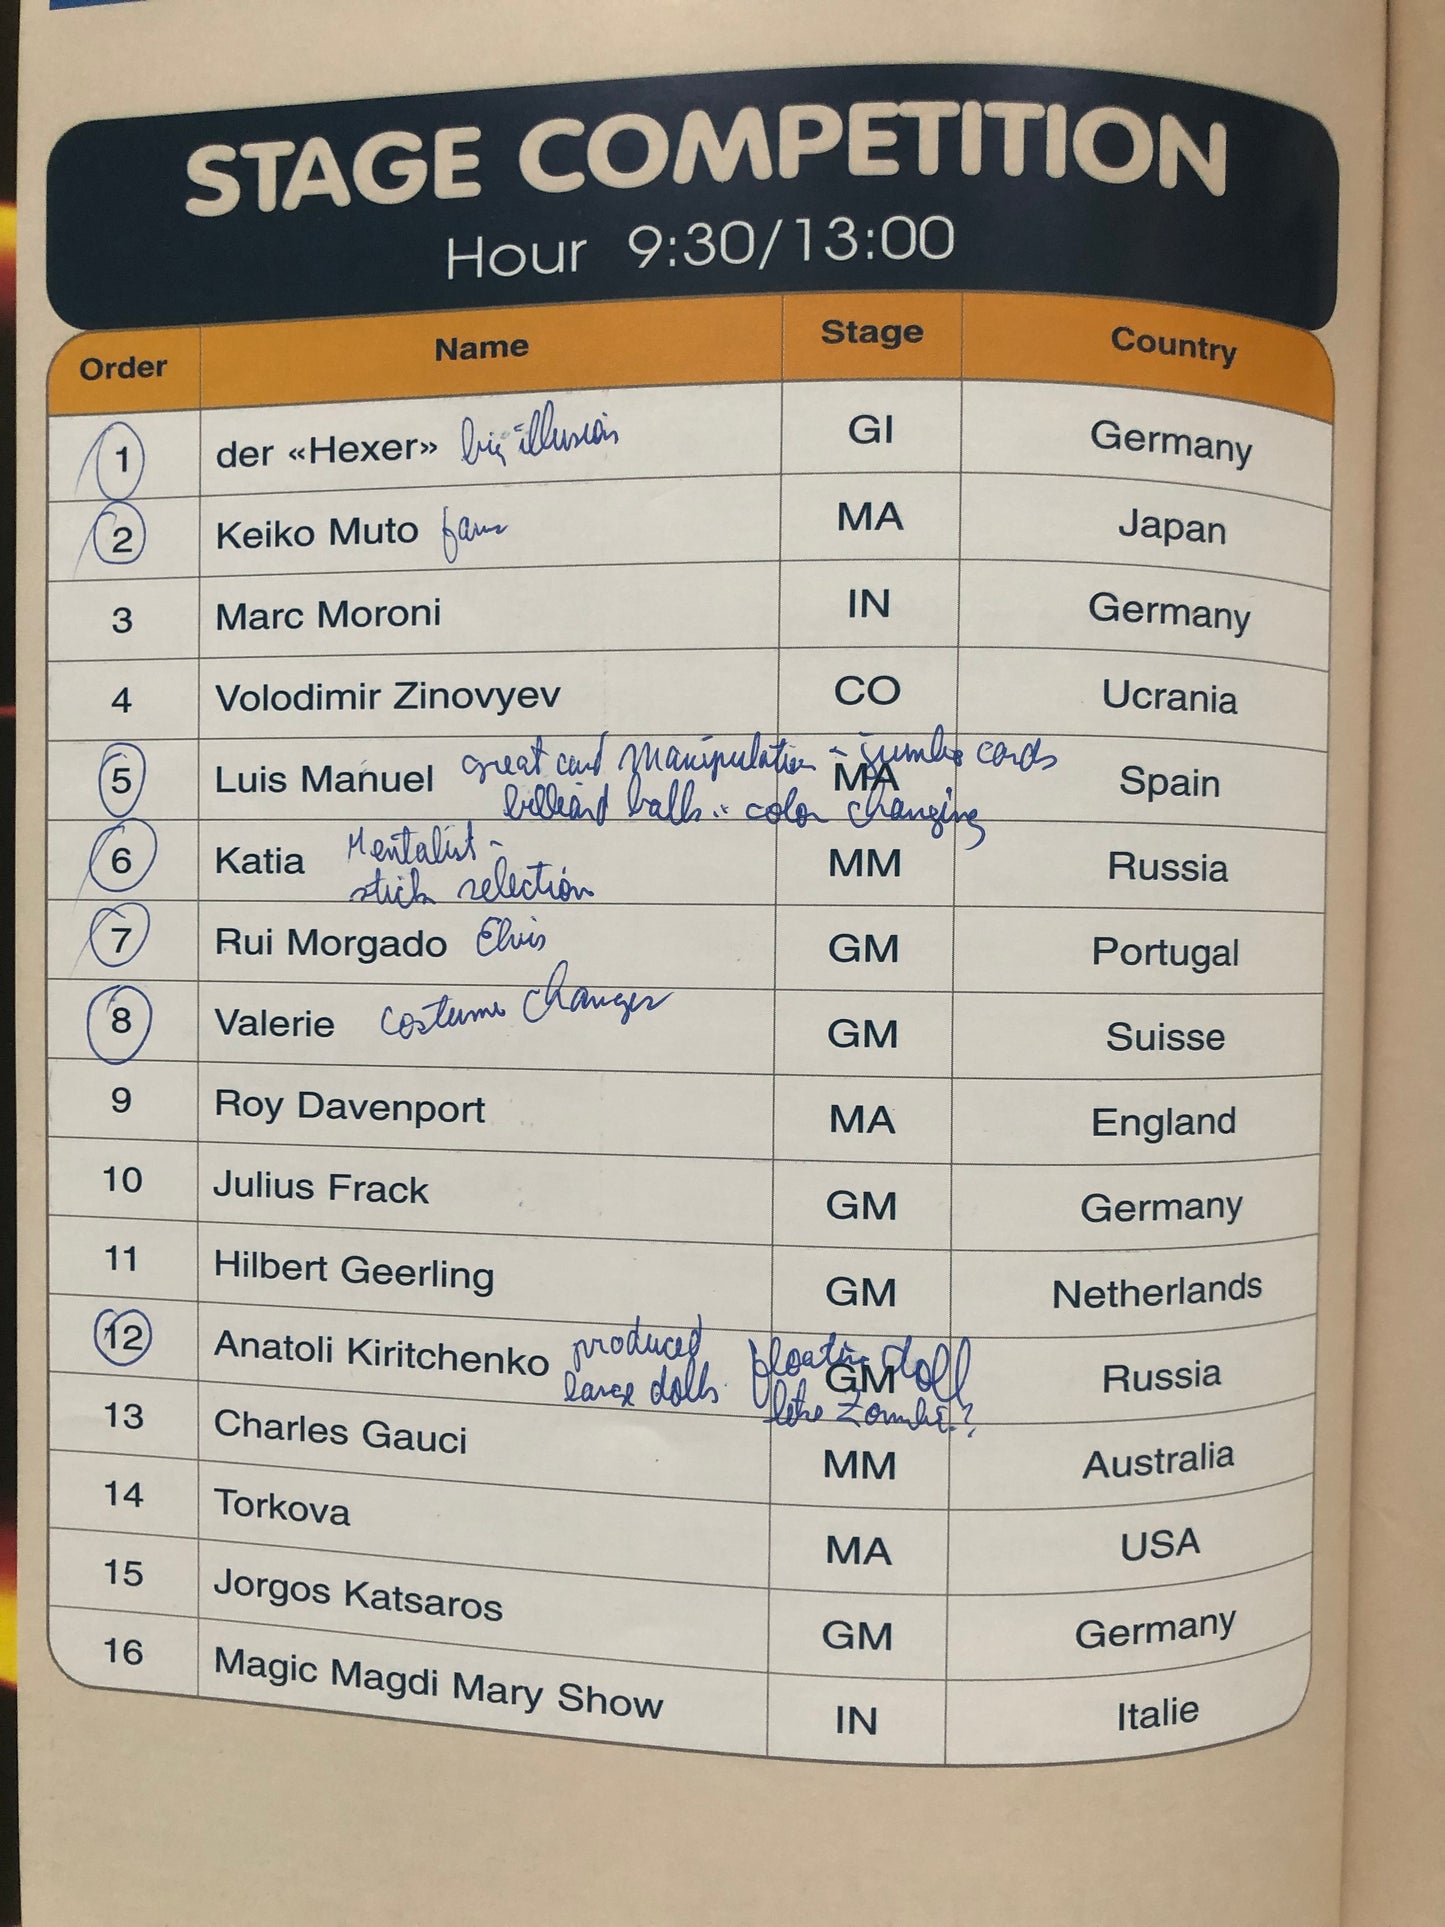 STAGE COMPETITION
Hour 9:30/13:00
Order Name Stage Country
1 der «Hexer» big illusion GI Germany
2 Keiko Muto fans MA Japan
3 Marc Moroni IN Germany
4 Volodimir Zinovyev CO Ucrania
5 Luis Manuel great card manipulation - jumbo cards MA Spain
billiard balls - color changing
6 Katia Mentalist - MM Russia
stick selection
7 Rui Morgado Elvis GM Portugal
8 Valerie costume changes GM Suisse
9 Roy Davenport MA England
10 Julius Frack GM Germany
11 Hilbert Geerling GM Netherlands
12 Anatoli Kiritchenko produced floating doll GM Russia
large dolls like Zombie?
13 Charles Gauci MM Australia
14 Torkova MA USA
15 Jorgos Katsaros GM Germany
16 Magic Magdi Mary Show IN Italie